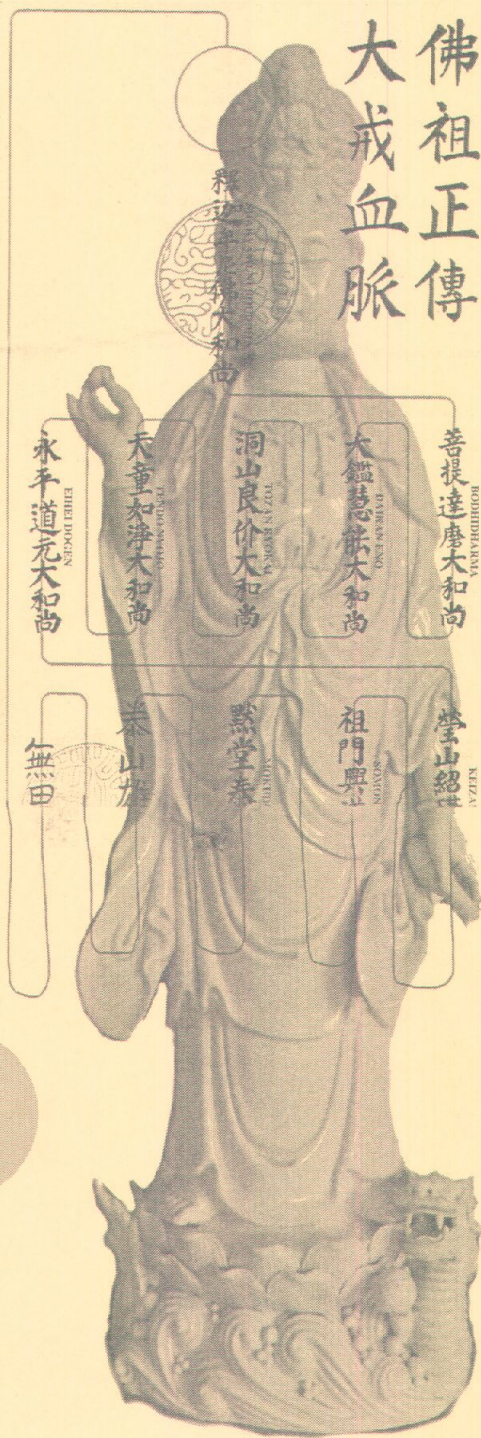 佛祖正傳
大戒血脈
釋迦牟尼佛大和尚
菩提達磨大和尚
BODHIDHARMA
大鑑慧能大和尚
DAIKAN ENO
洞山良价大和尚
TOZAN RYOKAI
天童如淨大和尚
TENDO NYOJO
永平道元大和尚
EIHEI DOGEN
瑩山紹
KEIZA
祖門興
SOMON
默堂泰
MOKUDO
泰山雄
無田